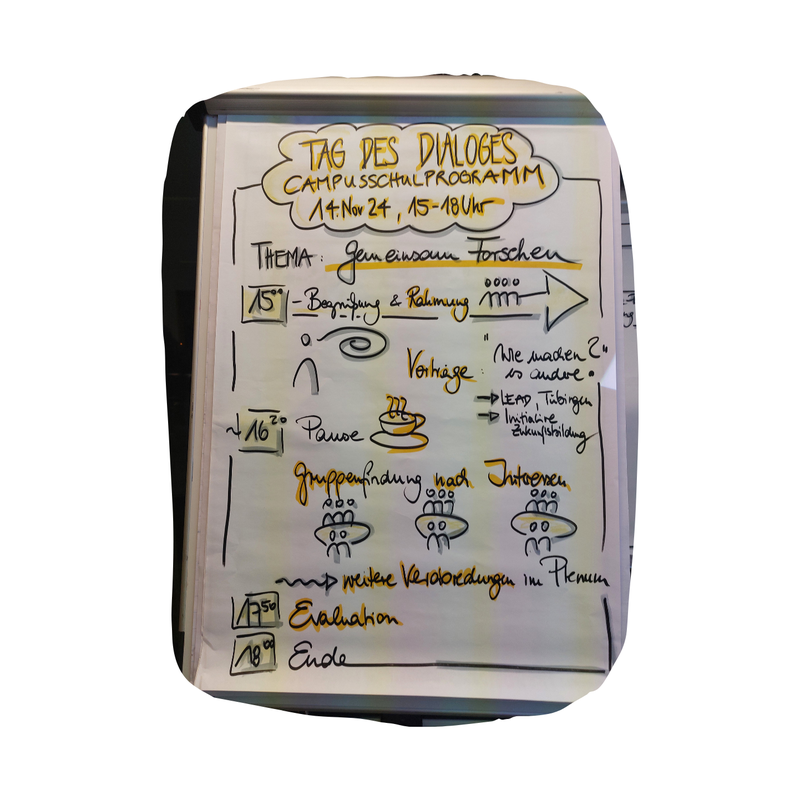 TAG DES DIALOGES
CAMPUSSCHULPROGRAMM
14. Nov 24, 15-18 Uhr
THEMA: Gemeinsam Forschen
15⁰⁰ - Begrüßung & Rahmung
Vorträge: "Wie machen
es andere?"
→ LEAD, Tübingen
→ Initiative
Zukunftsbildung
~ 16²⁰ Pause
Gruppenfindung nach Interessen
weitere Verabredungen im Plenum
17⁵⁰ Evaluation
18⁰⁰ Ende